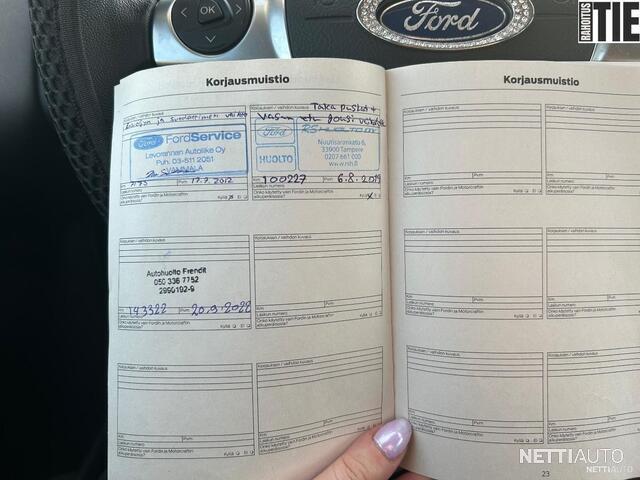 OK
Ford
RAHOITUS TIE
Korjausmuistio
Korjauksen / vaihdon kuvaus
ja suodattimen vaihto
Ford FordService
Levorannan Autoliike Oy
Puh. 03-511 2051
Km Pvm 17.7.2012
Laskun numero
Onko käytetty vain Fordin ja Motorcraftin
alkuperäisosia? Kyllä Ei
Korjauksen / vaihdon kuvaus Taka puslat +
Vasen etu jousi
Ford
HUOLTO
Nuutisarankatu 6,
33900 Tampere
0207 661 000
www.rsh.fi
Km 100227 Pvm 6.8.2019
Laskun numero
Onko käytetty vain Fordin ja Motorcraftin
alkuperäisosia?
Korjauksen / vaihdon kuvaus
Autohuolto Frendit
050 336 7752
2990192-9
Km 143322 Pvm 20.9.2022
Laskun numero
Onko käytetty vain Fordin ja Motorcraftin
alkuperäisosia? Kyllä Ei
Korjauksen / vaihdon kuvaus
Km Pvm
Laskun numero
Onko käytetty vain Fordin ja Motorcraftin
alkuperäisosia? Kyllä Ei
Korjauksen / vaihdon kuvaus
Km Pvm
Laskun numero
Onko käytetty vain Fordin ja Motorcraftin
alkuperäisosia? Kyllä Ei
Korjauksen / vaihdon kuvaus
Km Pvm
Laskun numero
Onko käytetty vain Fordin ja Motorcraftin
alkuperäisosia? Kyllä Ei
Korjausmuistio
Korjauksen / vaihdon kuvaus
Km Pvm
Laskun numero
Onko käytetty vain Fordin ja Motorcraftin
alkuperäisosia?
Korjauksen / vaihdon kuvaus
Km
Laskun numero
Onko käytetty vain Fordin ja Motorcraftin
alkuperäisosia?
Korjauksen / vaihdon kuvaus
Km Pvm
Laskun numero
Onko käytetty vain Fordin ja Motorcraftin
alkuperäisosia? Kyllä Ei
Korjauksen / vaihdon kuvaus
Km
Laskun numero
Onko käytetty vain Fordin ja Motorcraftin
alkuperäisosia?
Korjauksen / vaihdon kuvaus
Km Pvm
Laskun numero
Onko käytetty vain Fordin ja Motorcraftin
Korjauksen / vaihdon kuvaus
Km
Laskun numero
23
NETTIAUTO
NETTIAUTO